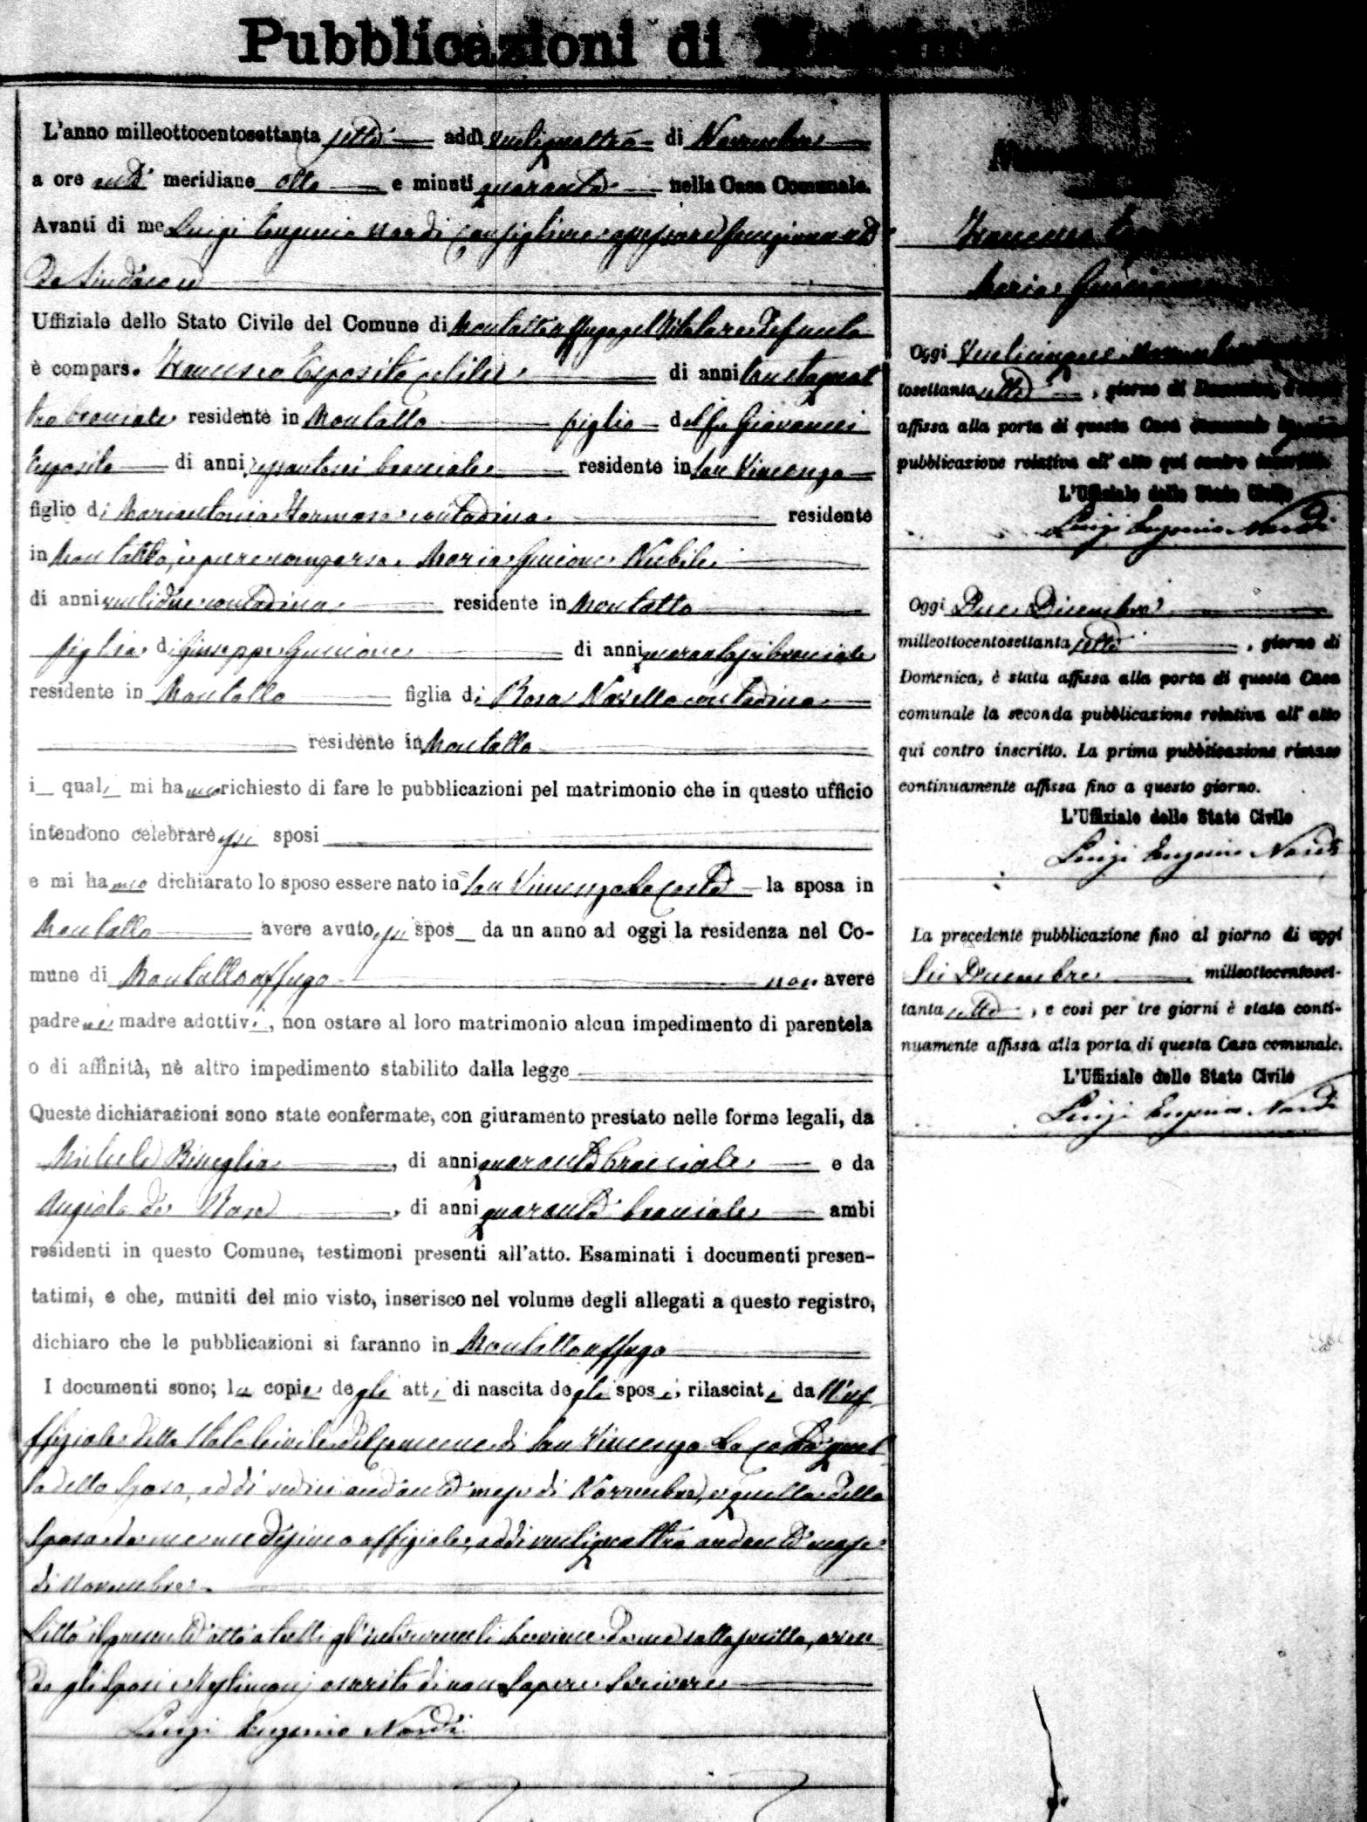 Pubblicazioni di
L'anno milleottocentosettanta sette addì ventiquattro di Novembre
a ore anti meridiane otto e minuti quaranta nella Casa Comunale.
Avanti di me Luigi Eugenio Nardi Consigliere assessore funzionante
da Sindaco
Uffiziale dello Stato Civile del Comune di Montalto uffugo
è compars. Francesco Esposito celibe di anni trentaquat
tro bracciale residente in Montalto figlio del fu Giovanni
Esposito di anni bracciale residente in San Vincenzo
figlio di Mariantonia contadina residente
in Montalto, è pure comparsa Maria Guccione Nubile
di anni ventidue contadina residente in Montalto
figlia di Giuseppe Guccione di anni quarantasei bracciale
residente in Montalto figlia di Rosa contadina
residente in Montalto
i quali mi hanno richiesto di fare le pubblicazioni pel matrimonio che in questo ufficio
intendono celebrare essi sposi
e mi hanno dichiarato lo sposo essere nato in San Vincenzo la costa la sposa in
Montalto avere avuto essi spos da un anno ad oggi la residenza nel Co-
mune di Montalto uffugo non avere
padre nè madre adottivi, non ostare al loro matrimonio alcun impedimento di parentela
o di affinità, nè altro impedimento stabilito dalla legge
Queste dichiarazioni sono state confermate, con giuramento prestato nelle forme legali, da
Michele Bisceglia, di anni quaranta bracciale e da
Angiolo de Rose, di anni quaranta bracciale ambi
residenti in questo Comune, testimoni presenti all'atto. Esaminati i documenti presen-
tatimi, e che, muniti del mio visto, inserisco nel volume degli allegati a questo registro,
dichiaro che le pubblicazioni si faranno in Montalto uffugo
I documenti sono; le copie degli atti di nascita degli sposi, rilasciate dall'uf
ffiziale dello Stato Civile del Comune di San Vincenzo la costa quel
la dello Sposo, addì sedici andante mese di Novembre, e quella della
Sposa da me medesimo uffiziale, addì ventiquattro andante mese
di Novembre.
Letto il presente atto a tutti gl'intervenuti lo viene da me sottoscritto, aven
do gli Sposi e testimoni asserito di non Sapere Scrivere
Luigi Eugenio Nardi
Francesco
Maria
Oggi Venticinque Novembre
tosettanta sette, giorno di Domenica,
affissa alla porta di questa Casa comunale
pubblicazione relativa all'atto qui contro inscritto.
L'Uffiziale dello Stato Civile
Luigi Eugenio Nardi
Oggi Due Dicembre
milleottocentosettanta sette, giorno di
Domenica, è stata affissa alla porta di questa Casa
comunale la seconda pubblicazione relativa all'atto
qui contro inscritto. La prima pubblicazione rimase
continuamente affissa fino a questo giorno.
L'Uffiziale dello Stato Civile
Luigi Eugenio Nardi
La precedente pubblicazione fino al giorno di oggi
Sei Dicembre milleottocentoset-
tanta sette, e così per tre giorni è stata conti-
nuamente affissa alla porta di questa Casa comunale.
L'Uffiziale dello Stato Civile
Luigi Eugenio Nardi